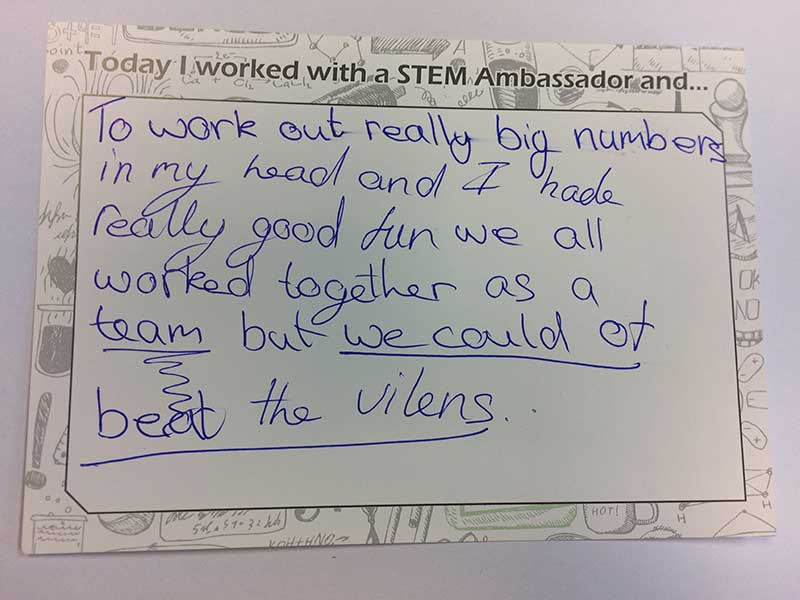 Today I worked with a STEM Ambassador and...
To work out really big numbers
in my head and I hade
really good fun we all
worked together as a
team but we could of
beat the vilens..
OK
NO
HOT!
KOH+HNO₃→